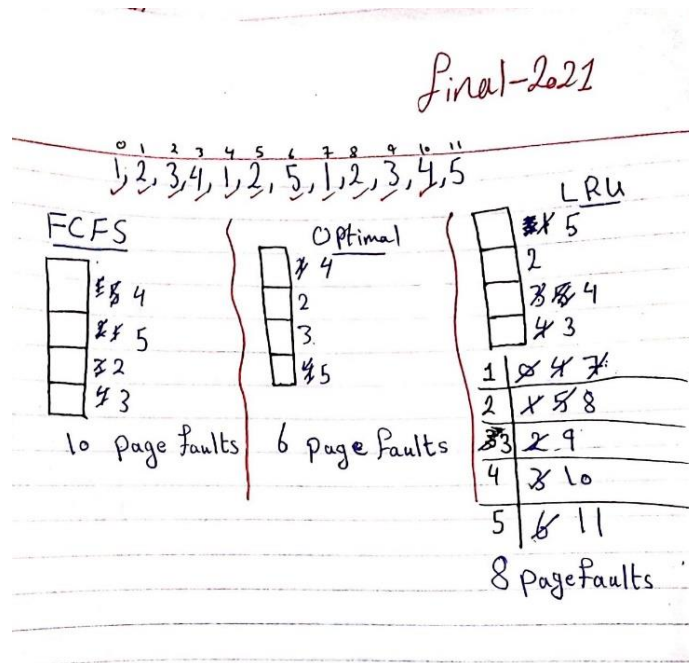 final-2021
0 1 2 3 4 5 6 7 8 9 10 11
1, 2, 3, 4, 1, 2, 5, 1, 2, 3, 4, 5
FCFS
1 5 4
2 1 5
3 2
4 3
10 page faults
Optimal
1 4
2
3
4 5
6 page faults
LRU
1 5
2
3 5 4
4 3
1 0 4 7
2 1 5 8
3 2 9
4 3 10
5 6 11
8 page faults